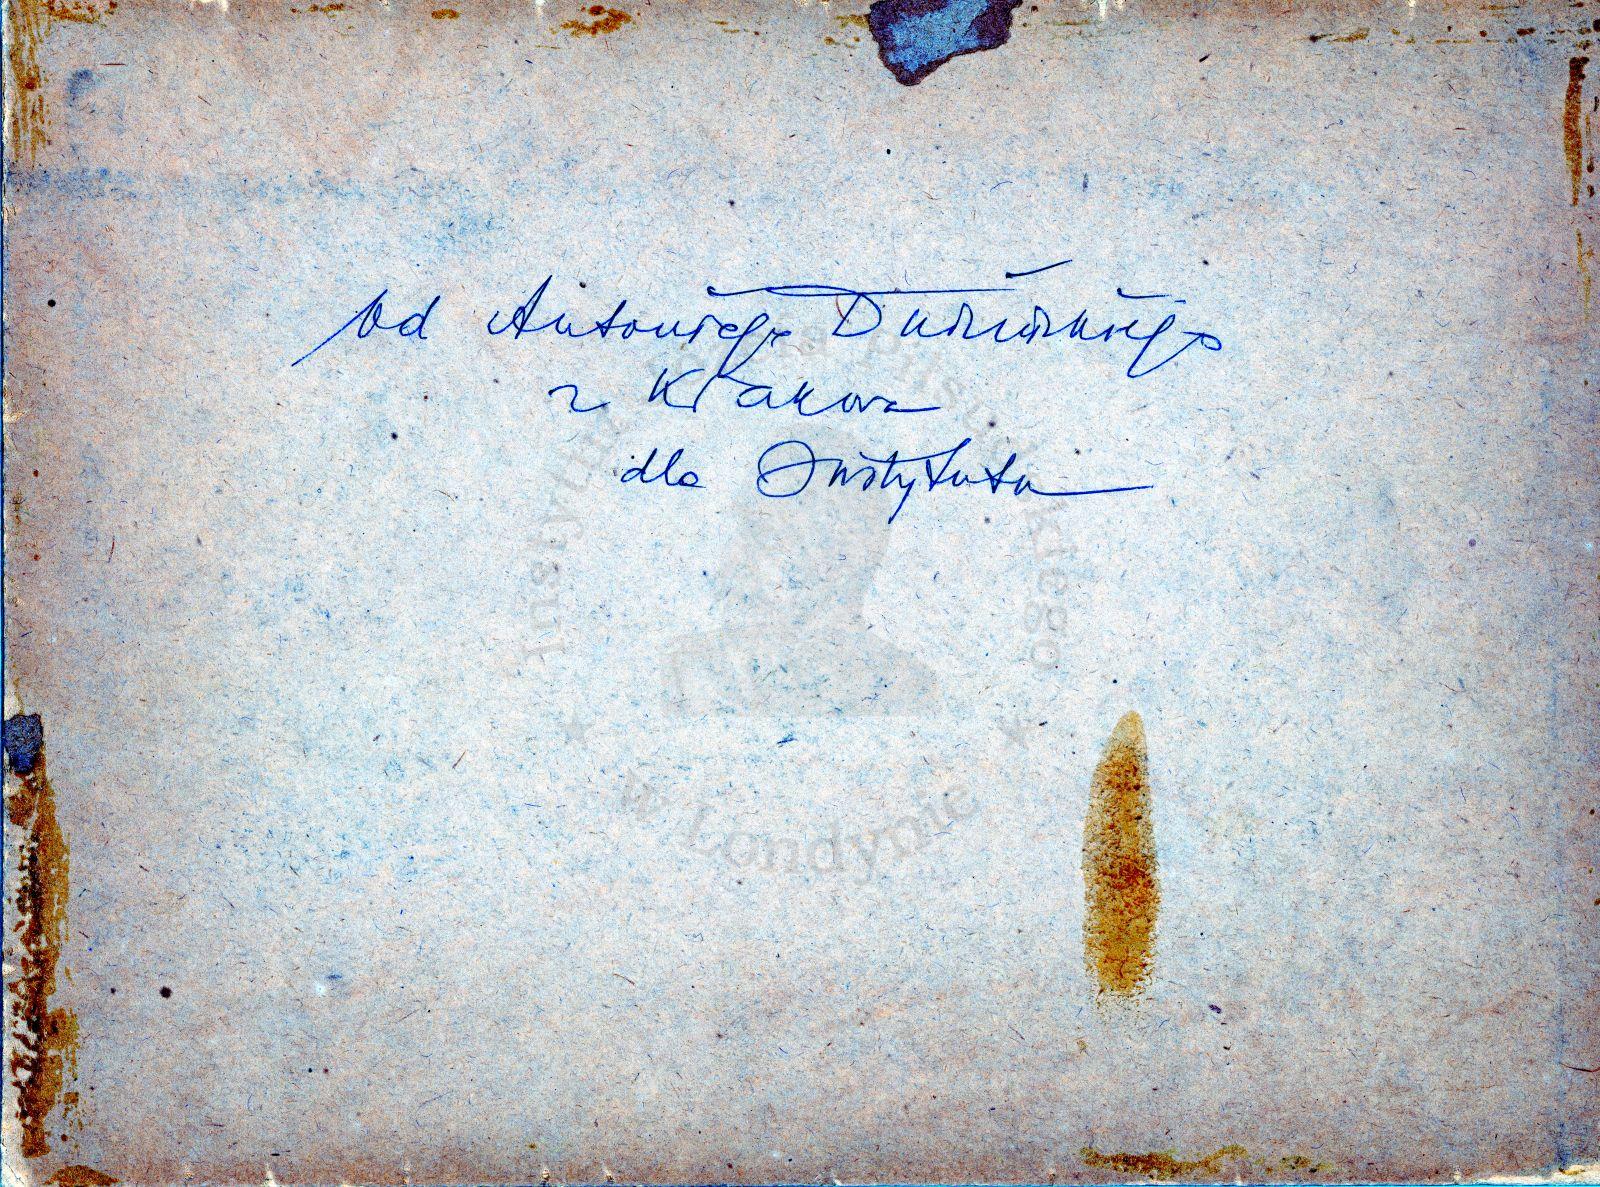 od Antoniego
z Krakowa
dla Instytutu
Instytut Józefa Piłsudskiego
w Londynie